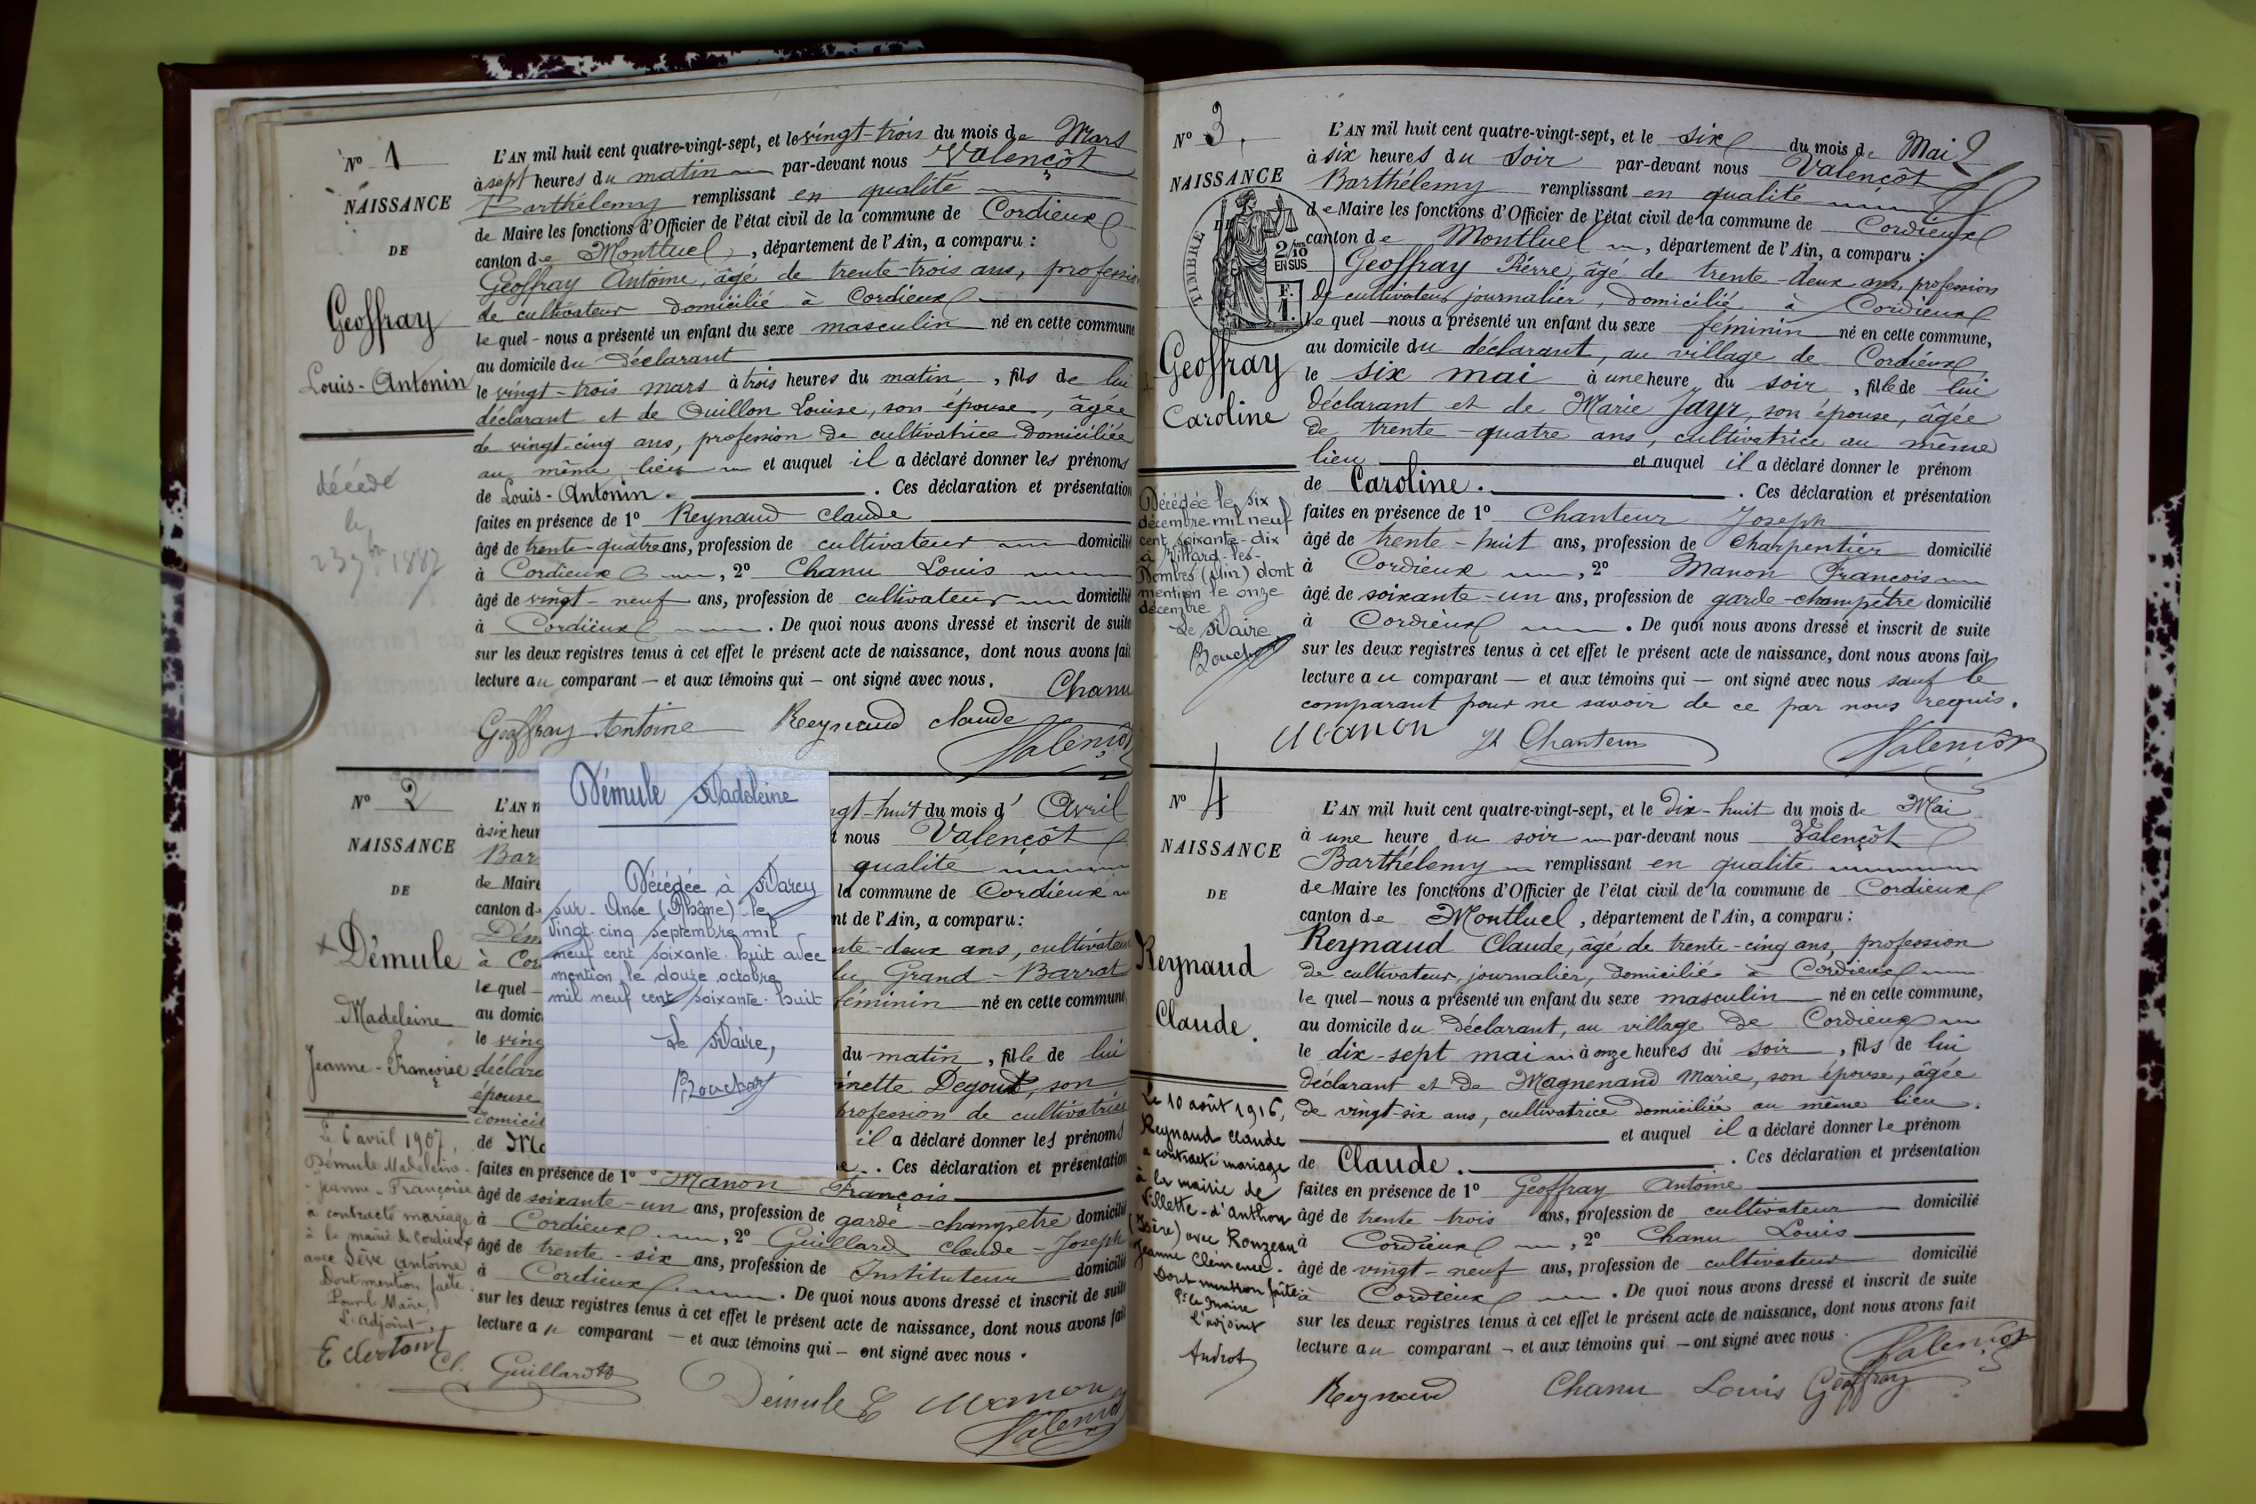 Nº 1
NAISSANCE
DE
Geoffray
Louis-Antonin
décédé
le
23 9bre 1887
L'AN mil huit cent quatre-vingt-sept, et le vingt-trois du mois de Mars
à sept heures du matin par-devant nous Valençôt
Barthélemy remplissant en qualité
de Maire les fonctions d'Officier de l'état civil de la commune de Cordieux
canton de Montluel, département de l'Ain, a comparu :
Geoffray Antoine, âgé de trente-trois ans, profession
de cultivateur domicilié à Cordieux
lequel - nous a présenté un enfant du sexe masculin né en cette commune
au domicile du déclarant
le vingt-trois mars à trois heures du matin, fils de lui
déclarant et de Quillon Louise, son épouse, âgée
de vingt-cinq ans, profession de cultivatrice domiciliée
au même lieu et auquel il a déclaré donner les prénoms
de Louis-Antonin. Ces déclaration et présentation
faites en présence de 1º Reynaud Claude
âgé de trente-quatre ans, profession de cultivateur domicilié
à Cordieux, 2º Chanu Louis
âgé de vingt-neuf ans, profession de cultivateur domicilié
à Cordieux. De quoi nous avons dressé et inscrit de suite
sur les deux registres tenus à cet effet le présent acte de naissance, dont nous avons fait
lecture au comparant — et aux témoins qui — ont signé avec nous. Chanu
Geoffray Antoine Reynaud claude
Valençôt
Nº 2
NAISSANCE
DE
Démule
Madeleine
Jeanne-Françoise
Le 6 avril 1907,
Démule Madeleine
-Jeanne-Françoise
a contracté mariage
à la mairie de Cordieux
avec Sève Antoine
Dont mention faite.
Pour le Maire,
L'adjoint,
L'AN m ngt-huit du mois d' Avril
à six heur t nous Valençôt
Bar qualité
de Maire la commune de Cordieux
canton d nt de l'Ain, a comparu :
Dém nte-deux ans, cultivateur
à Cor du Grand-Barrat
lequel - féminin né en cette commune,
au domic
le ving du matin, fille de lui
déclara inette Degout, son
épouse profession de cultivatrice
domicil il a déclaré donner les prénoms
de Ma e. Ces déclaration et présentation
faites en présence de 1º Manon François
âgé de soixante-un ans, profession de garde-champêtre domicilié
à Cordieux, 2º Guillard Claude-Joseph
âgé de trente-six ans, profession de Instituteur domicilié
à Cordieux. De quoi nous avons dressé et inscrit de suite
sur les deux registres tenus à cet effet le présent acte de naissance, dont nous avons fait
lecture au comparant — et aux témoins qui — ont signé avec nous.
Cl. Guillard Démule Manon
Valençôt
Démule Madeleine
Décédée à Marcy
sur-Anse (Rhône) le
vingt-cinq septembre mil
neuf cent soixante-huit avec
mention le douze octobre
mil neuf cent soixante-huit
Le Maire,
Bouchard
Nº 3
NAISSANCE
DE
TIMBRE
2/10
EN SUS
F.
1.
Geoffray
Caroline
Décédée le six
décembre mil neuf
cent soixante-dix
à Villard-les-
Dombes (Ain) dont
mention le onze
décembre
Le Maire
Bouchard
2
L'AN mil huit cent quatre-vingt-sept, et le six du mois de Mai
à six heures du soir par-devant nous Valençôt
Barthélemy remplissant en qualité
de Maire les fonctions d'Officier de l'état civil de la commune de Cordieux
canton de Montluel, département de l'Ain, a comparu :
Geoffray Pierre, âgé de trente-deux ans, profession
de cultivateur journalier, domicilié à Cordieux
lequel — nous a présenté un enfant du sexe féminin né en cette commune,
au domicile du déclarant, au village de Cordieux
le six mai à une heure du soir, fille de lui
déclarant et de Marie Jayr, son épouse, âgée
de trente-quatre ans, cultivatrice au même
lieu et auquel il a déclaré donner le prénom
de Caroline. Ces déclaration et présentation
faites en présence de 1º Chanteur Joseph
âgé de trente-huit ans, profession de Charpentier domicilié
à Cordieux, 2º Manon François
âgé de soixante-un ans, profession de garde-champêtre domicilié
à Cordieux. De quoi nous avons dressé et inscrit de suite
sur les deux registres tenus à cet effet le présent acte de naissance, dont nous avons fait
lecture au comparant — et aux témoins qui — ont signé avec nous sauf le
comparant pour ne savoir de ce par nous requis.
Manon Jh Chanteur Valençôt
Nº 4
NAISSANCE
DE
Reynaud
Claude.
Le 10 août 1916,
Reynaud Claude
a contracté mariage
à la mairie de
Villette-d'Anthon
(Isère) avec Ronzeau
Jeanne Clémence.
Dont mention faite
Pr le Maire
L'adjoint
Androt
L'AN mil huit cent quatre-vingt-sept, et le dix-huit du mois de Mai
à une heure du soir par-devant nous Valençôt
Barthélemy remplissant en qualité
de Maire les fonctions d'Officier de l'état civil de la commune de Cordieux
canton de Montluel, département de l'Ain, a comparu :
Reynaud Claude, âgé de trente-cinq ans, profession
de cultivateur, journalier, domicilié à Cordieux
lequel — nous a présenté un enfant du sexe masculin né en cette commune,
au domicile du déclarant, au village de Cordieux
le dix-sept mai à onze heures du soir, fils de lui
déclarant et de Magnenand Marie, son épouse, âgée
de vingt-six ans, cultivatrice domiciliée au même lieu.
et auquel il a déclaré donner le prénom
de Claude. Ces déclaration et présentation
faites en présence de 1º Geoffray Antoine
âgé de trente trois ans, profession de cultivateur domicilié
à Cordieux, 2º Chanu Louis
âgé de vingt-neuf ans, profession de cultivateur domicilié
à Cordieux. De quoi nous avons dressé et inscrit de suite
sur les deux registres tenus à cet effet le présent acte de naissance, dont nous avons fait
lecture au comparant — et aux témoins qui — ont signé avec nous.
Valençôt
Reynaud Chanu Louis Geoffray